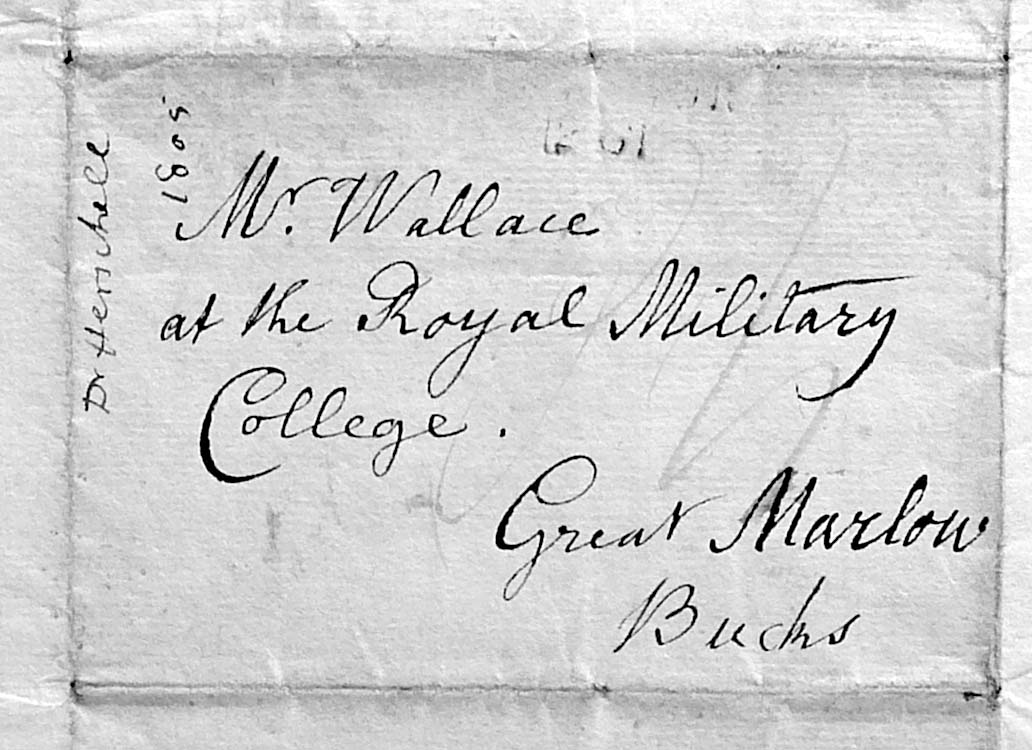 Dr Herschell
1805
Mr. Wallace
at the Royal Military
College.
Great Marlow
Bucks